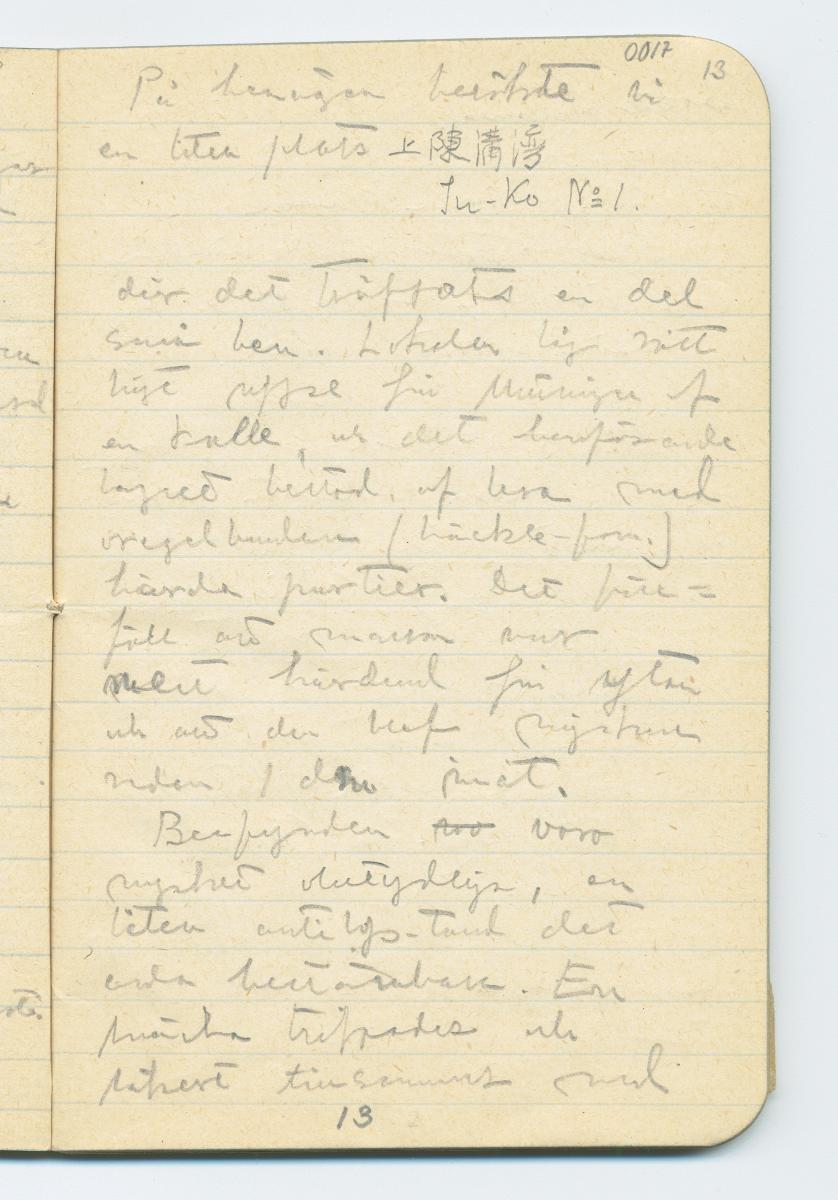 0017
13
På hemvägen besökte vi
en liten plats 上陳溝湾
Ju-Ko No 1.
där det träffats en del
små ben. Lokalen låg rätt
högt uppe för
en kulle, och det benförande
lagret bestod af lera med
oregelbunden (häckle-form.)
hårda partier. Det före=
föll att massan var
mest härdad för ytan
och att den blef
redan 1 dm inåt.
Benfynden voro
mycket obetydliga, en
liten antilop-tand det
enda bestämbara. En
träffades och
säkert tillsammans med
13